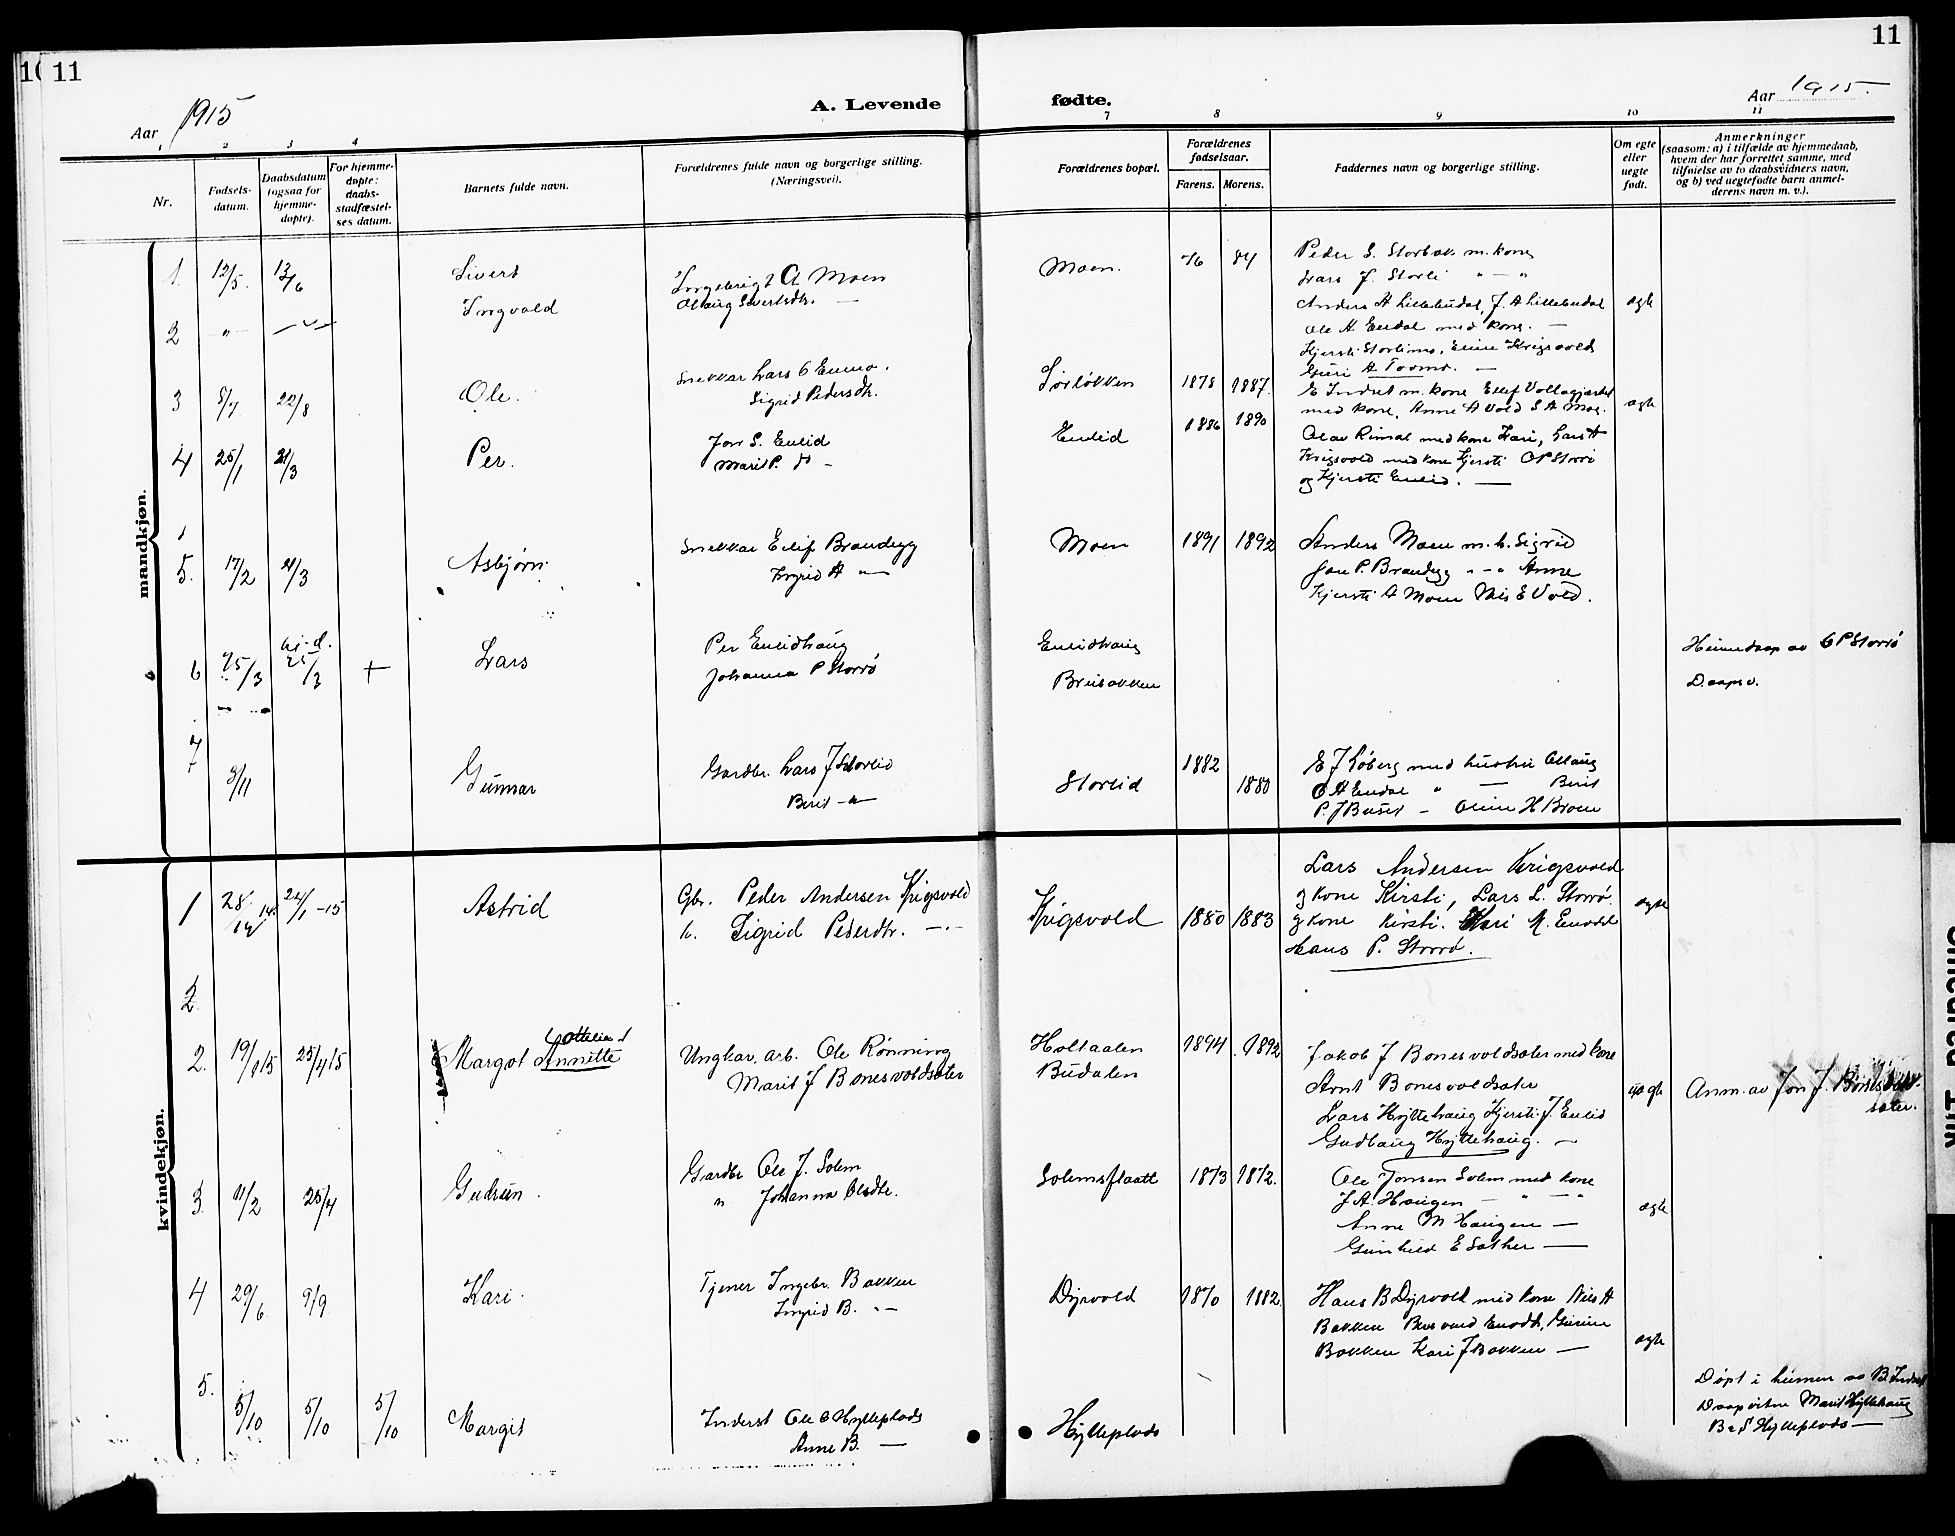 11 11
1915 A. Levende fødte. Aar 1915
Aar
1 2 3 4 7 8 9 10 11
Nr.
Fødsels-
datum.
Daabsdatum
(ogsaa for
hjemme-
døpte).
For hjemme-
døpte:
daabs-
stadfæstel-
ses datum.
Barnets fulde navn.
Forældrenes fulde navn og borgerlige stilling.
(Næringsvei).
Forældrenes bopæl.
Forældrenes
fødselsaar.
Farens. Morens.
Faddernes navn og borgerlige stilling.
Om egte
eller
uegte
født.
Anmerkninger
(saasom: a) i tilfælde av hjemmedaab,
hvem der har forrettet samme, med
tilføielse av to daabsvidners navn,
og b) ved uegtefødte barn anmel-
derens navn m. v.).
mandkjøn.
1. 12/5. 13/6 Sivert Ingebrigt A Moen Moen. 76 84 Peder S. Storbak m. kone
Ingvold Olaug Sivertsdtr. — Lars J. Storli " — "
2 — " — Anders H Lillebudal, J. A Lillebudal ægte
Ole A Endal med kone. —
Kjersti Storlimo, Eline Krigsvold
Guri A Toomo. —
3 8/7 22/8 Ole. Snekkar Lars O Enmo. Sørløkken 1878 1887. E Indset m. kone Ellef Vollagjardet
Sigrid Pedersdtr. med kone, Anne A Vold S A Moe. ægte
4 25/1 21/3 Per. Jon S. Enlid Enlid 1886 1890 Olav Rimol med kone Kari, Lars A
Marit P. do - Krigsvold med kone Kjersti O P Storrø
og Kjersti Enlid. —
5. 17/2 21/3 Asbjørn. Snekkar Eilif Brandegg Moen 1891 1892 Anders Moen m. h. Sigrid
Ingrid A — " — Jon P. Brandegg " - " Anne
Kjersti A Moen Nils E Vold.
6 25/3 hj. d. 25/3 + Lars Per Enlidhaug Enlidhaug Heimedaap av O P Storrø
Johanna P Storrø Brubakken Daapsv.
7 3/11 Gunnar Gardbr. Lars J Storlid Storlid 1882 1880 E J Løberg med hustru Ollaug
Berit - " - O A Endal " — Berit
P. J Buset - Oline H Broen
kvindekjøn.
1 28/12 14. 24/1 -15 Astrid Gbr. Peder Andersen Krigsvold Krigsvold 1880 1883 Lars Andersen Krigsvold
h. Sigrid Pedersdtr. — " — og kone Kirsti, Lars L. Storrø. ægte
og kone Kirsti. Kari M. Enodd
Hans P. Storrø.
2.
2. 19/1 15 25/4 15 Margot Annette Ungkar, arb. Ole Rønning Holtaalen 1894 1892 Jakob J Bonesvoldsæter med kone
Marit J Bonesvoldsæter Budalen Arnt Bonesvoldsæter uægte Anm. av Jon J. Bonesvold-
sæter.
Lars Hyttehaug Kjersti J. Enlid
Gudlaug Hyttehaug. —
3. 11/2 25/4 Gudrun. Gardbr Ole J. Solem Solemsflaatt 1873 1872. Ole Jonsen Solem med kone
" Johanna Olsdtr. J A. Haugen — " — "
Anne M Haugen — ægte
Gunhild E Sæther —
4 29/6 9/9 Kari. Tjener Ingebr. Bakken Dyrvold 1870 1882. Hans B Dyrvold med kone Nils A
Ingrid B. " — Bakken Enodh, Gurine
Bakken Kari J Bakken — ægte
5. 5/10 5/10 5/10 Margit Inderst Ole O Hylleplads Hylleplads Døpt i heimen av B. Indset
Anne B. — Daapsvitne Marit Hyttehaug
B S Hylleplads —